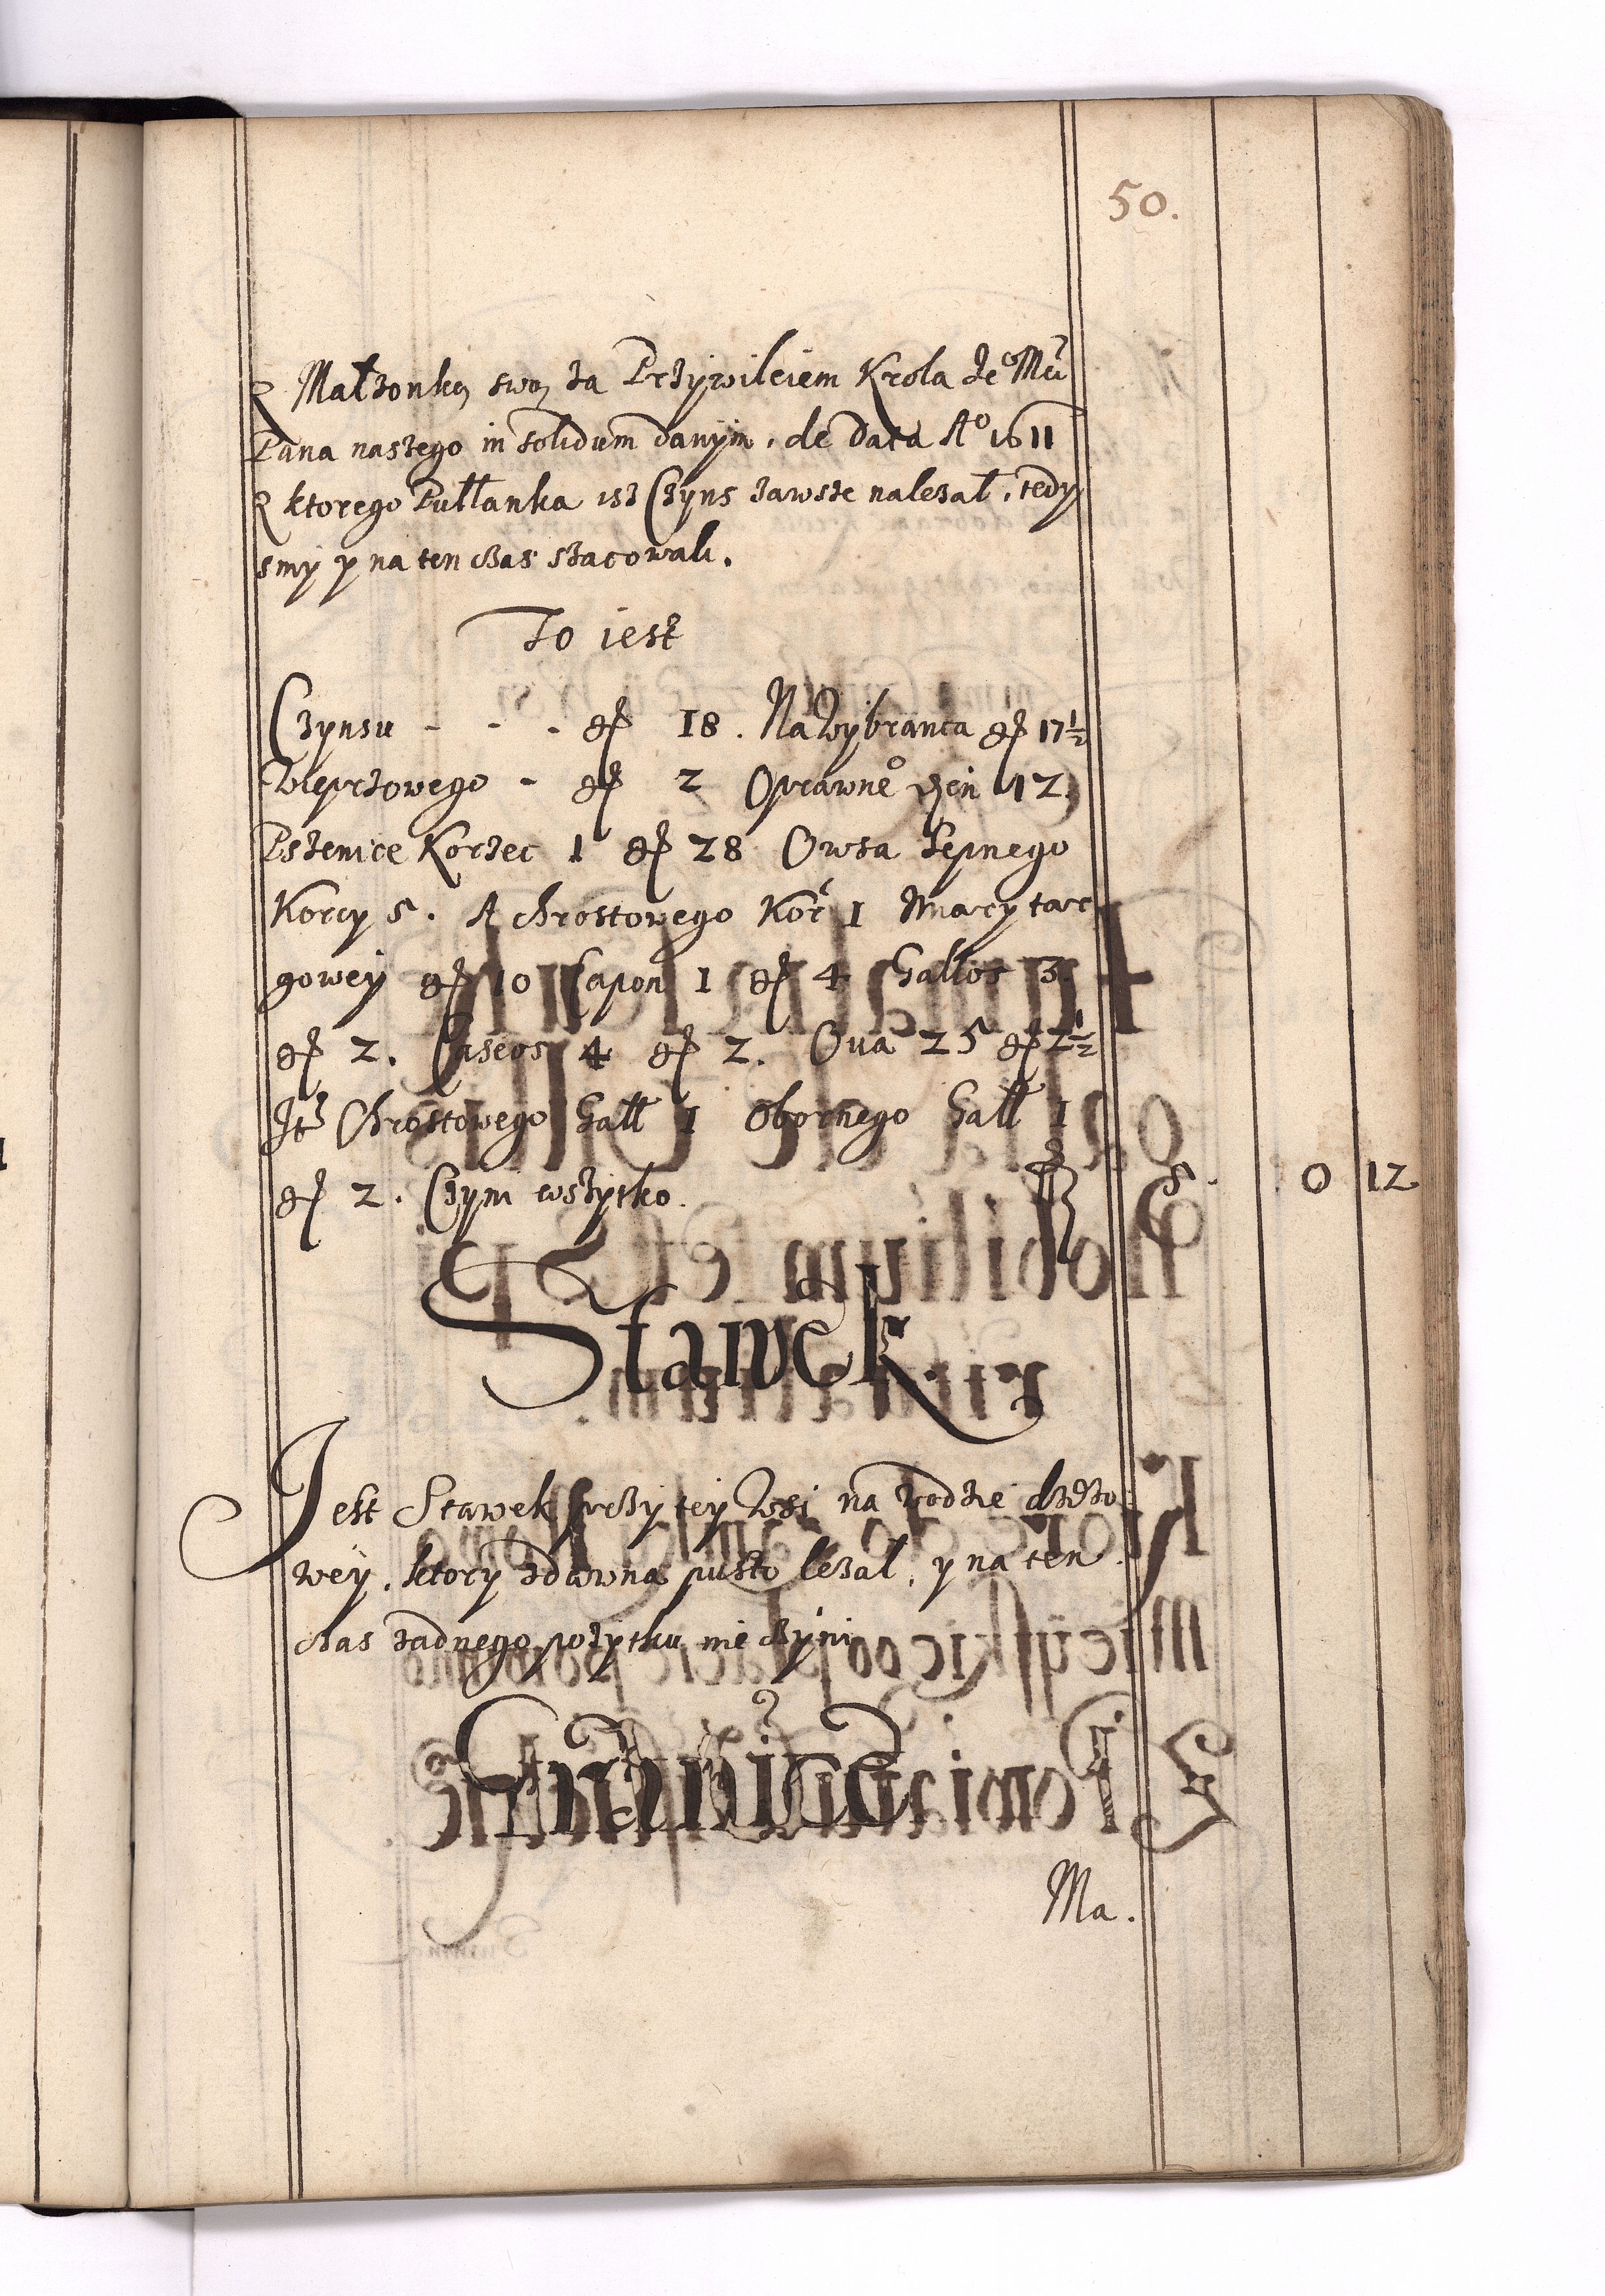 50.
Z Małzonką swą za Przywileiem Krola Je͠o Mći
Pana naszego in solidum danym, de data Aº 1611
Z ktorego Pułłanka isz Czyns zawsze nalezał, tedy
smy y na ten czas szacowali.
To iest
Czynsu - - - g͠r 18. Na Wybranca g͠r 17½
Wieprzowego - g͠r 2 Oprawne͠o den 12
Pszenice Korzec 1 g͠r 28 Owsa Sepnego
Korcy 5. A Chrostowego Kor 1 Miary tar
gowey g͠r 10 Capon 1 g͠r 4 Gallos 3
g͠r 2. Caseos 4 g͠r 2. Oua 25 g͠r 2½
Jt Chrostowego Gall 1 Obornego Gall 1
g͠r 2. Czyni wszytko. 5. 0 12
Stawek
Jest Stawek przy tey Wsi na wodzie dżdżo
wey, ktory zdawna pusto lezal, y na ten
czas zadnego pozytku nie czyni
Granice
Ma.